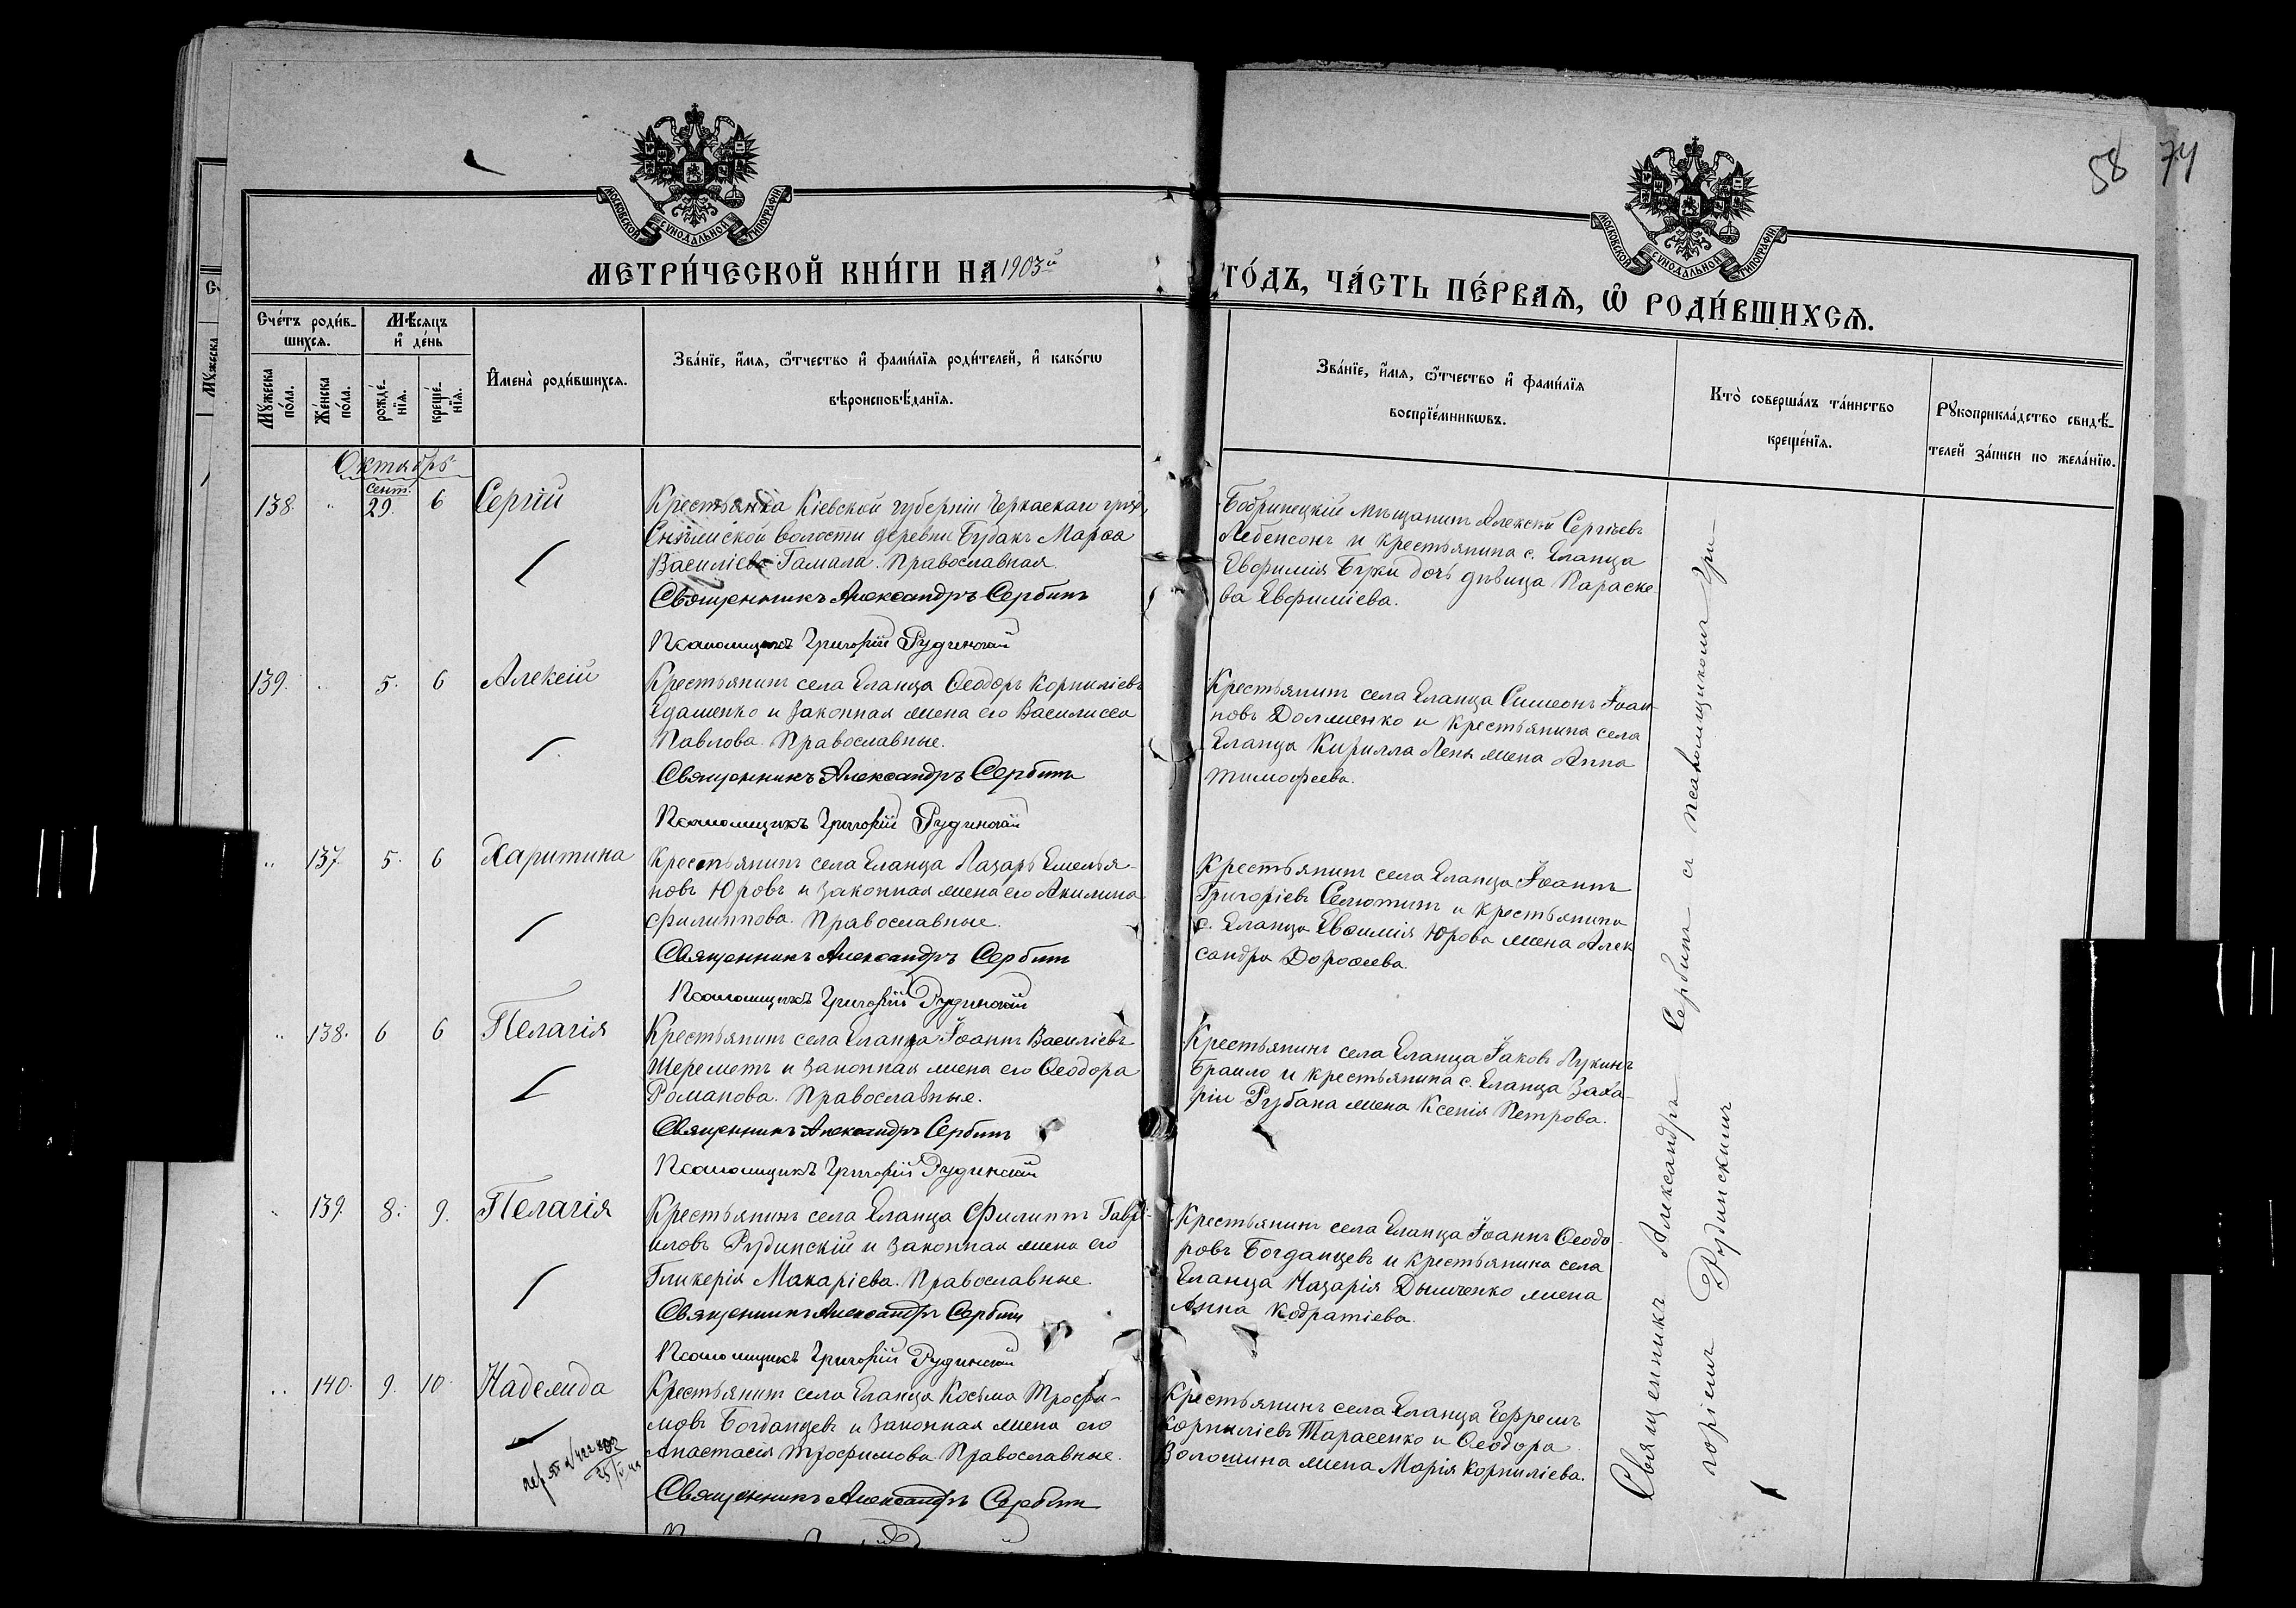 58 74
МОСКОВСКОЙ СѴНОДАЛЬНОЙ ТИПОГРАФІИ
МОСКОВСКОЙ СѴНОДАЛЬНОЙ ТИПОГРАФІИ
МЕТРИ́ЧЕСКОЙ КНИ́ГИ НА 1903й
ГО́ДЪ, ЧА́СТЬ ПЕ́РВАѦ, Ѡ҆ РОДИ́ВШИХСѦ.
Сче́тъ роди́в-
шихсѧ.
Мѣ́сѧцъ
и҆ де́нь
Мꙋ́жеска
по́ла.
Же́нска
по́ла.
рожде́-
нїѧ.
креще́-
нїѧ.
И҆мена̀ роди́вшихсѧ.
Зва́нїе, и҆́мѧ, ѻ҆́тчество и҆ фами́лїѧ роди́телей, и҆ како́гѡ
вѣроисповѣ́данїѧ.
Зва́нїе, и҆́мѧ, ѻ҆́тчество и҆ фами́лїѧ
воспрїе́мникѡвъ.
Кто̀ соверша́лъ та́инство
креще́нїѧ.
Рꙋкоприкла́дство свидѣ́-
телей за́писи по жела́нїю.
Октябрь
138. " сент. 29. 6 Сергій
Крестьянка Кіевской губерніи Черкаскаго уѣзд,
волости деревни Будакъ Марѳа
Василіева Гамала. Православная.
Священникъ Александръ Сербинъ
Псаломщикъ Григорій Рудинскій
Бобринецкій мѣщанинъ Алексѣй Сергѣевъ
Лебенсонъ и крестьянина с. Еланца
Евфимія Бурки дочь дѣвица Параске-
ва Евфиміева.
139. " 5. 6 Алексій
Крестьянинъ села Еланца Ѳеодоръ Корниліевъ
Едаменко и законная жена его Василисса
Павлова. Православные.
Священникъ Александръ Сербинъ
Псаломщикъ Григорій Рудинскій
Крестьянинъ села Еланца Симеонъ Іоан-
новъ Долженко и крестьянина села
Еланца Кирилла жена Анна
Тимофеева.
" 137. 5. 6 Харитина
Крестьянинъ села Еланца Лазарь Емелья-
новъ Юровъ и законная жена его Акилина
Филиппова. Православные.
Священникъ Александръ Сербинъ
Псаломщикъ Григорій Рудинскій
Крестьянинъ села Еланца Іоаннъ
Григоріевъ Селютинъ и крестьянина
с. Еланца Евѳимія Юрова жена Алек
сандра Дороѳеева.
" 138. 6 6 Пелагія
Крестьянинъ села Еланца Іоаннъ Василіевъ
Шереметъ и законная жена его Ѳеодора
Романова. Православные.
Священникъ Александръ Сербинъ
Псаломщикъ Григорій Рудинскій
Крестьянинъ села Еланца Іаковъ Лукинъ
Браило и крестьянина с. Еланца Заха-
ріи Рубана жена Ксенія Петрова.
" 139. 8. 9. Пелагія
Крестьянинъ села Еланца Филиппъ Гаврі-
иловъ Рудинскій и законная жена его
Гликерія Макаріева. Православные.
Священникъ Александръ Сербинъ
Псаломщикъ Григорій Рудинскій
Крестьянинъ села Еланца Іоаннъ Ѳеодо-
ровъ Богданцевъ и крестьянина села
Еланца Назарія Дымченко жена
Анна Кодратіева.
" 140. 9. 10. Надежда
Крестьянинъ села Еланца Косьма Трофи-
мовъ Богданцевъ и законная жена его
Анастасія Трофимова. Православные.
Священникъ Александръ Сербинъ
Крестьянинъ села Еланца Ефремъ
Корниліевъ Тарасенко и Ѳеодора
Волошина жена Марія Корниліева.
Священникъ Александръ Сербинъ съ псаломщикомъ Гри-
горіемъ Рудинскимъ